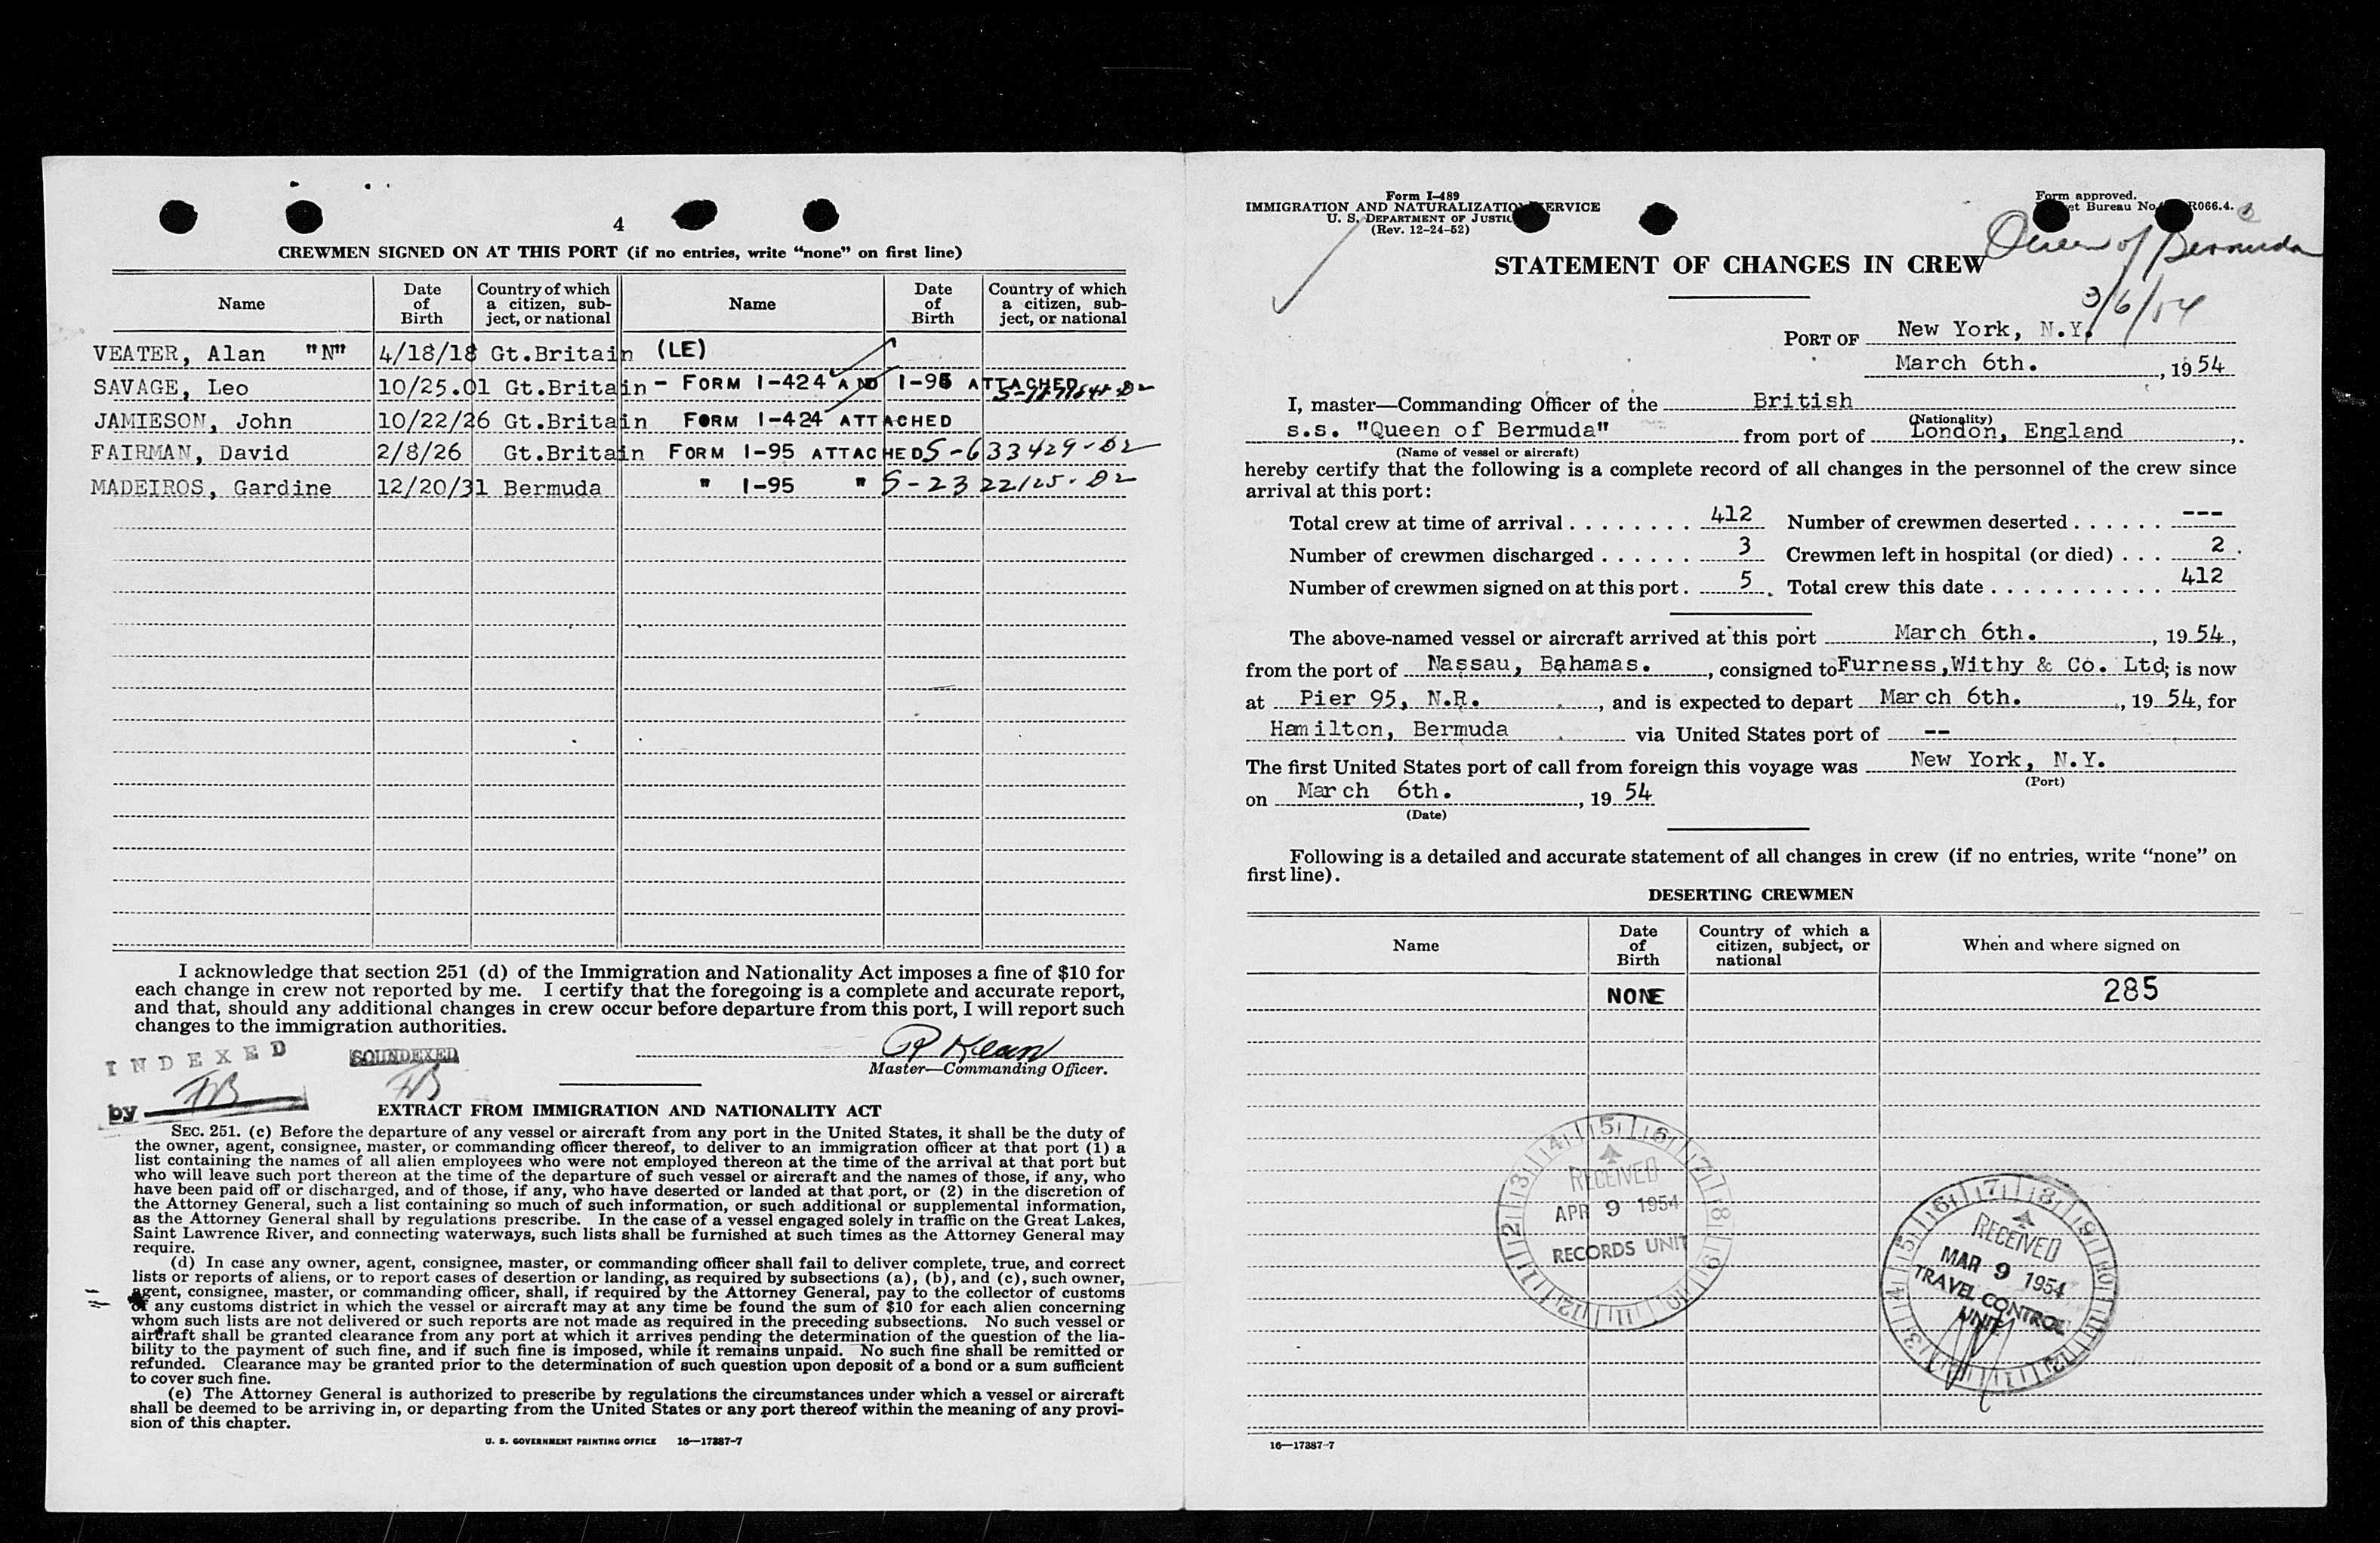 4
CREWMEN SIGNED ON AT THIS PORT (if no entries, write “none” on first line)
Name
Date of Birth
Country of which a citizen, subject, or national
Name
Date of Birth
Country of which a citizen, subject, or national
VEATER, Alan "N" 4/18/18 Gt.Britain (LE)
SAVAGE, Leo 10/25.01 Gt.Britain - FORM I-424 AND I-95 ATTACHED
JAMIESON, John 10/22/26 Gt.Britain FORM I-424 ATTACHED
FAIRMAN, David 2/8/26 Gt.Britain FORM I-95 ATTACHED S-633429-D2
MADEIROS, Gardine 12/20/31 Bermuda " I-95 " S-2322125-D2
I acknowledge that section 251 (d) of the Immigration and Nationality Act imposes a fine of $10 for
each change in crew not reported by me. I certify that the foregoing is a complete and accurate report,
and that, should any additional changes in crew occur before departure from this port, I will report such
changes to the immigration authorities.
INDEXED
SOUNDEXED
Master—Commanding Officer.
by
EXTRACT FROM IMMIGRATION AND NATIONALITY ACT
SEC. 251. (c) Before the departure of any vessel or aircraft from any port in the United States, it shall be the duty of
the owner, agent, consignee, master, or commanding officer thereof, to deliver to an immigration officer at that port (1) a
list containing the names of all alien employees who were not employed thereon at the time of the arrival at that port but
who will leave such port thereon at the time of the departure of such vessel or aircraft and the names of those, if any, who
have been paid off or discharged, and of those, if any, who have deserted or landed at that port, or (2) in the discretion of
the Attorney General, such a list containing so much of such information, or such additional or supplemental information,
as the Attorney General shall by regulations prescribe. In the case of a vessel engaged solely in traffic on the Great Lakes,
Saint Lawrence River, and connecting waterways, such lists shall be furnished at such times as the Attorney General may
require.
(d) In case any owner, agent, consignee, master, or commanding officer shall fail to deliver complete, true, and correct
lists or reports of aliens, or to report cases of desertion or landing, as required by subsections (a), (b), and (c), such owner,
agent, consignee, master, or commanding officer, shall, if required by the Attorney General, pay to the collector of customs
of any customs district in which the vessel or aircraft may at any time be found the sum of $10 for each alien concerning
whom such lists are not delivered or such reports are not made as required in the preceding subsections. No such vessel or
aircraft shall be granted clearance from any port at which it arrives pending the determination of the question of the lia-
bility to the payment of such fine, and if such fine is imposed, while it remains unpaid. No such fine shall be remitted or
refunded. Clearance may be granted prior to the determination of such question upon deposit of a bond or a sum sufficient
to cover such fine.
(e) The Attorney General is authorized to prescribe by regulations the circumstances under which a vessel or aircraft
shall be deemed to be arriving in, or departing from the United States or any port thereof within the meaning of any provi-
sion of this chapter.
U. S. GOVERNMENT PRINTING OFFICE 16—17387-7
Form I-489
IMMIGRATION AND NATURALIZATION SERVICE
U. S. DEPARTMENT OF JUSTICE
(Rev. 12-24-52)
Form approved.
Bureau No. R066.4.
Queen of Bermuda
3/6/54
STATEMENT OF CHANGES IN CREW
PORT OF New York, N.Y.
March 6th. , 19 54
I, master—Commanding Officer of the British
(Nationality)
s.s. "Queen of Bermuda" from port of London, England
(Name of vessel or aircraft)
hereby certify that the following is a complete record of all changes in the personnel of the crew since
arrival at this port:
Total crew at time of arrival . . . . . . . . 412 Number of crewmen deserted . . . . . . ---
Number of crewmen discharged . . . . . . 3 Crewmen left in hospital (or died) . . . 2
Number of crewmen signed on at this port . 5 Total crew this date . . . . . . . . . . . 412
The above-named vessel or aircraft arrived at this port March 6th. , 19 54,
from the port of Nassau, Bahamas. , consigned to Furness,Withy & Co. Ltd; is now
at Pier 95, N.R. , and is expected to depart March 6th. , 19 54, for
Hamilton, Bermuda via United States port of --
The first United States port of call from foreign this voyage was New York, N.Y.
(Port)
on March 6th. , 19 54
(Date)
Following is a detailed and accurate statement of all changes in crew (if no entries, write “none” on
first line).
DESERTING CREWMEN
Name
Date of Birth
Country of which a citizen, subject, or national
When and where signed on
NONE 285
RECEIVED
APR 9 1954
RECORDS UNIT
RECEIVED
MAR 9 1954
TRAVEL CONTROL
UNIT
16—17387-7